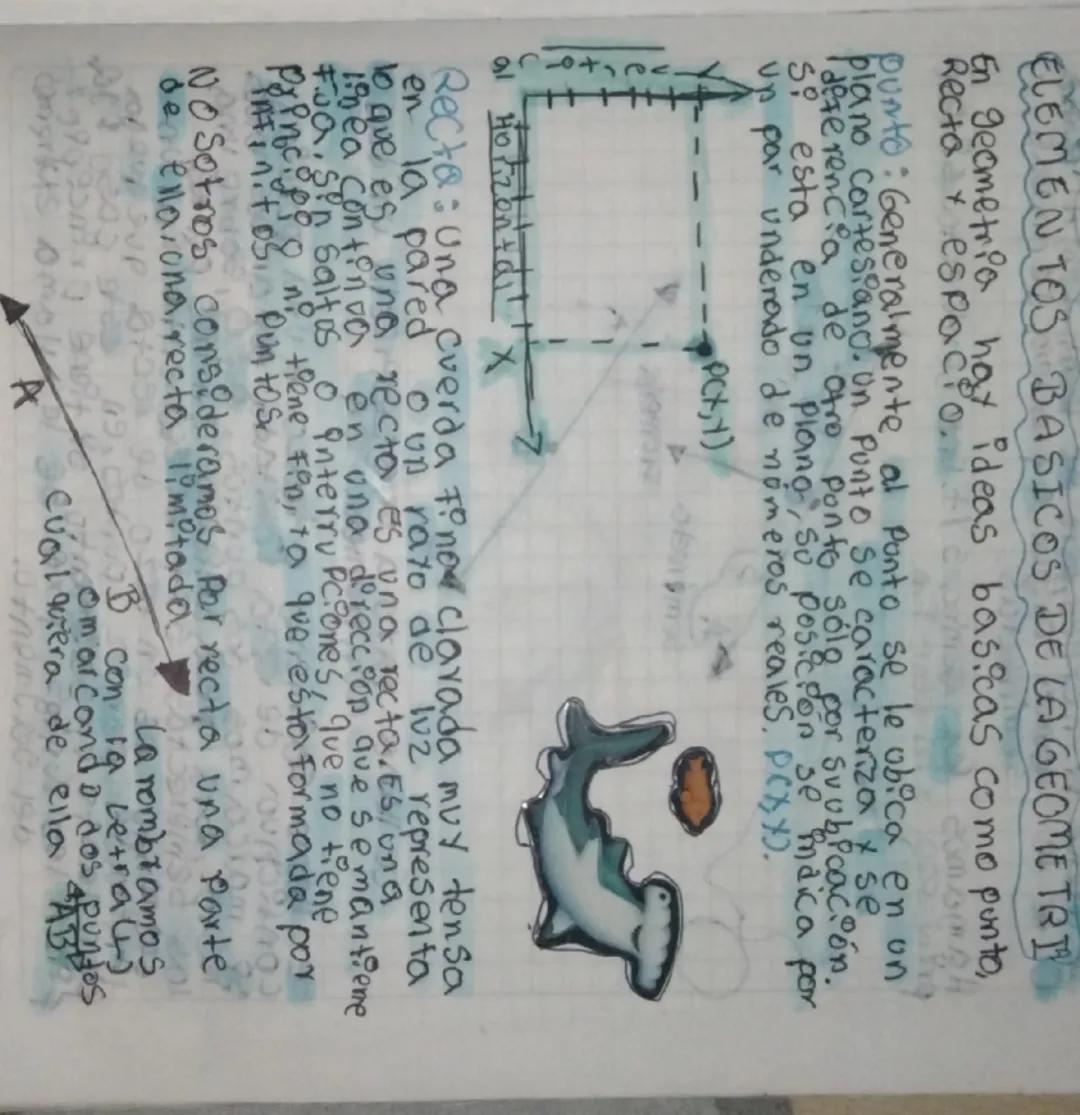 ELEMENTOS BASICOS DE LA GEOMETRIA
En geometria hay ideas basicas como punto,
Recta y espacio.
punto: Generalmente al punto se le ubica en un
plano cartesiano. un punto se caracteriza y se
diferencia de otro punto sólo por su ubicación.
si esta en un plano, su posición se indica por
un par underado de números reales. P(X,Y).
Y
P(X,Y)
Vertical
Horizontal
X
Recta: una cuerda fina clavada muy tensa
en la pared o un rayo de luz representa
lo que es una recta, es una recta. Es una
linea continua en una dirección que se mantiene
fija, sin saltos o interrupciones, que no tiene
principio ni tiene fin, ya que está formada por
infinitos puntos.
NOSotros consideramos por recta una parte
de ella, una recta limitada
A
B
La nombramos
con la letra (L)
o marcando dos puntos
cualquiera de ella AB